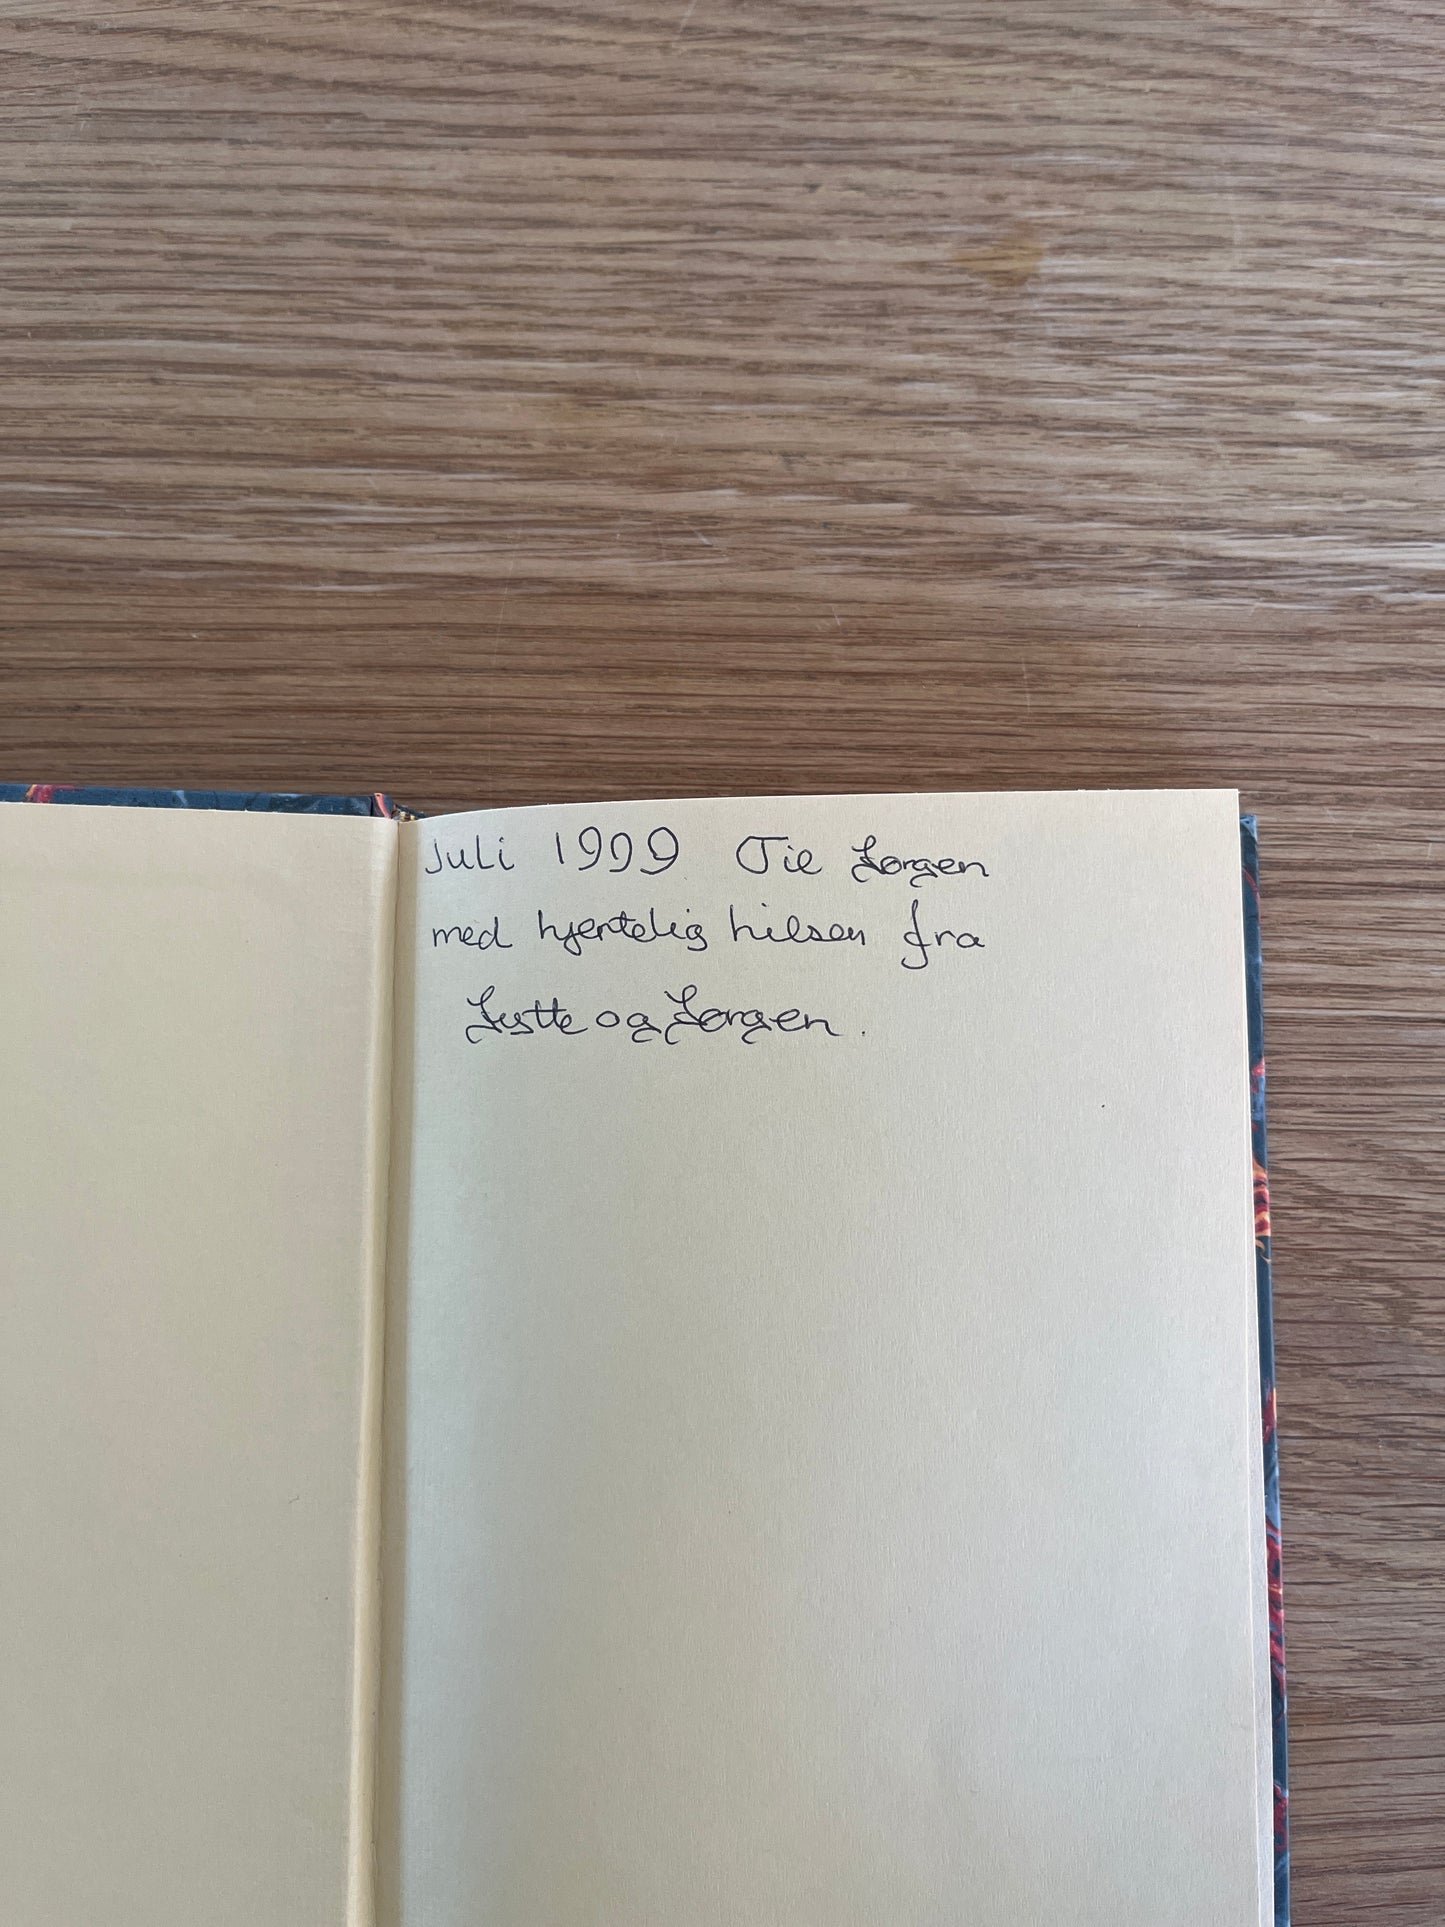 Juli 1999 Til Jørgen
med hjertelig hilsen fra
Jytte og Jørgen.